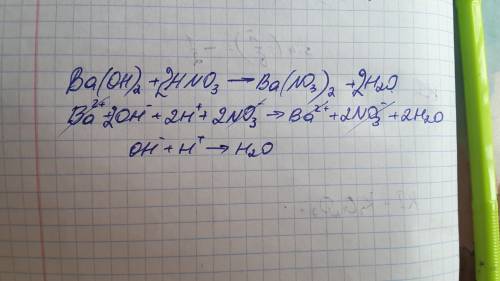 Ba(OH)₂ + 2HNO₃ → Ba(NO₃)₂ + 2H₂O
Ba²⁺ + 2OH⁻ + 2H⁺ + 2NO₃⁻ → Ba²⁺ + 2NO₃⁻ + 2H₂O
OH⁻ + H⁺ → H₂O